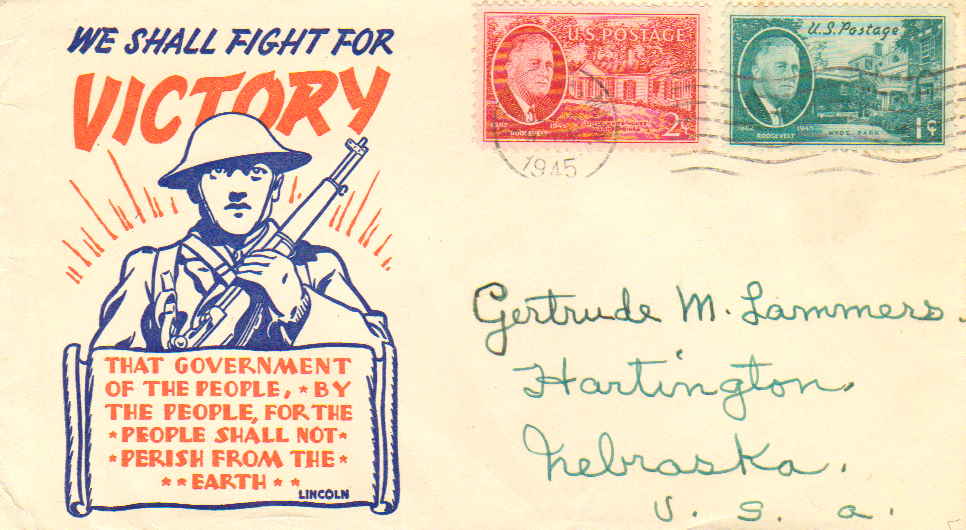 WE SHALL FIGHT FOR
VICTORY
THAT GOVERNMENT
OF THE PEOPLE, * BY
THE PEOPLE, FOR THE
*PEOPLE SHALL NOT*
*PERISH FROM THE*
**EARTH**
LINCOLN
U.S. POSTAGE
1882 1945
ROOSEVELT
2¢
U.S. Postage
1882 1945
ROOSEVELT HYDE PARK
1¢
1945
Gertrude M. Lammers.
Hartington,
Nebraska.
U. S. a.